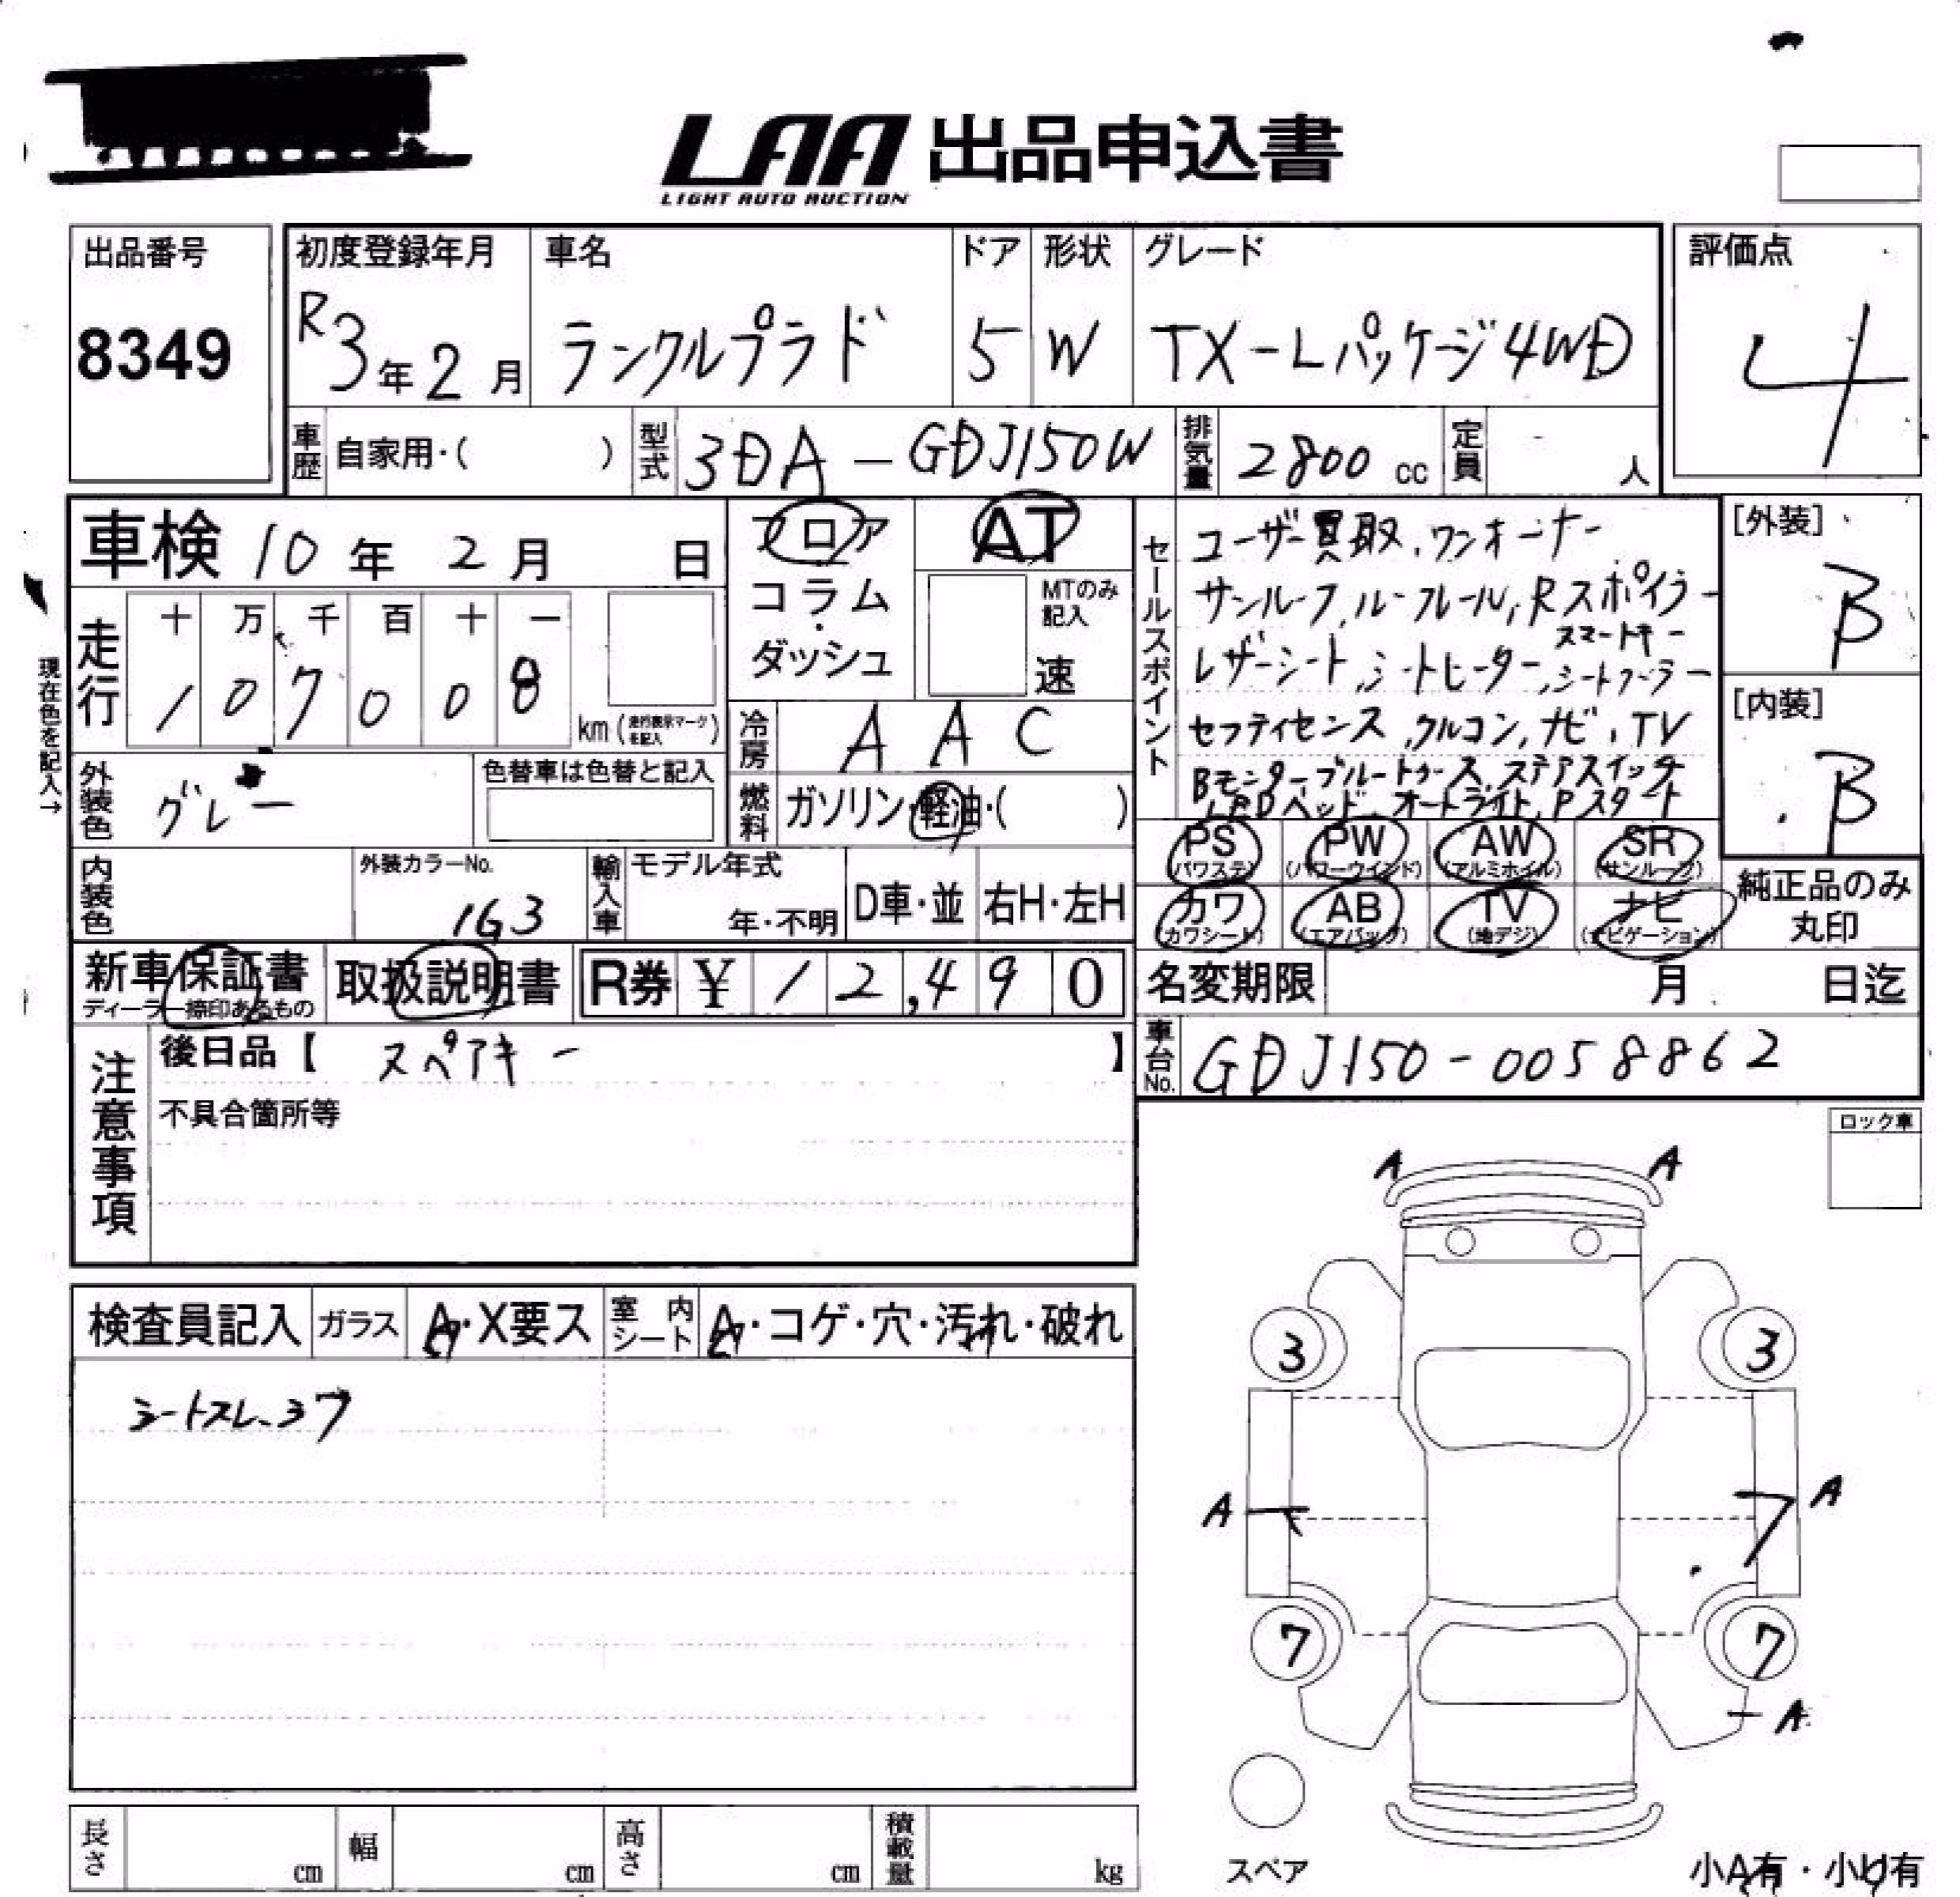 LAA 出品申込書
LIGHT AUTO AUCTION
出品番号
8349
初度登録年月
R3年2月
車名
ランクルプラド
ドア
5
形状
W
グレード
TX-Lパッケージ4WD
評価点
4
車歴 自家用・( )
型式 3DA-GDJ150W
排気量 2800 cc
定員 - 人
車検 10年 2月 日
フロア
コラム
・
ダッシュ
AT
MTのみ記入
速
セールスポイント
ユーザー買取、ワンオーナー
サンルーフ、ルーフレール、Rスポイラー
スマートキー
レザーシート、シートヒーター、シートクーラー
セフティセンス、クルコン、ナビ、TV
Bモニター ブルートゥース、ステアスイッチ
LEDヘッド、オートライト、Pスタート
[外装]
B
[内装]
B
現在色を記入→
走行
十 万 千 百 十 一
1 0 7 0 0 8
km (走行表示マークを記入)
冷房 AAC
外装色 グレー
色替車は色替と記入
燃料 ガソリン・軽油・( )
PS (パワステ)
PW (パワーウインド)
AW (アルミホイル)
SR (サンルーフ)
カワ (カワシート)
AB (エアバッグ)
TV (地デジ)
ナビ (ナビゲーション)
純正品のみ
丸印
内装色
外装カラーNo.
1G3
輸入車
モデル年式
年・不明
D車・並
右H・左H
新車保証書
ディーラー捺印あるもの
取扱説明書
R券 ¥ 12,490
名変期限 月 日迄
車台No. GDJ150-0058862
注意事項
後日品【 スペアキー 】
不具合箇所等
ロック車
検査員記入
ガラス A・X要ス
室内シート A・コゲ・穴・汚れ・破れ
シートスレ、コフ
A A
3 3
A A
7 7
A
スペア
小A有・小U有
長さ cm
幅 cm
高さ cm
積載量 kg